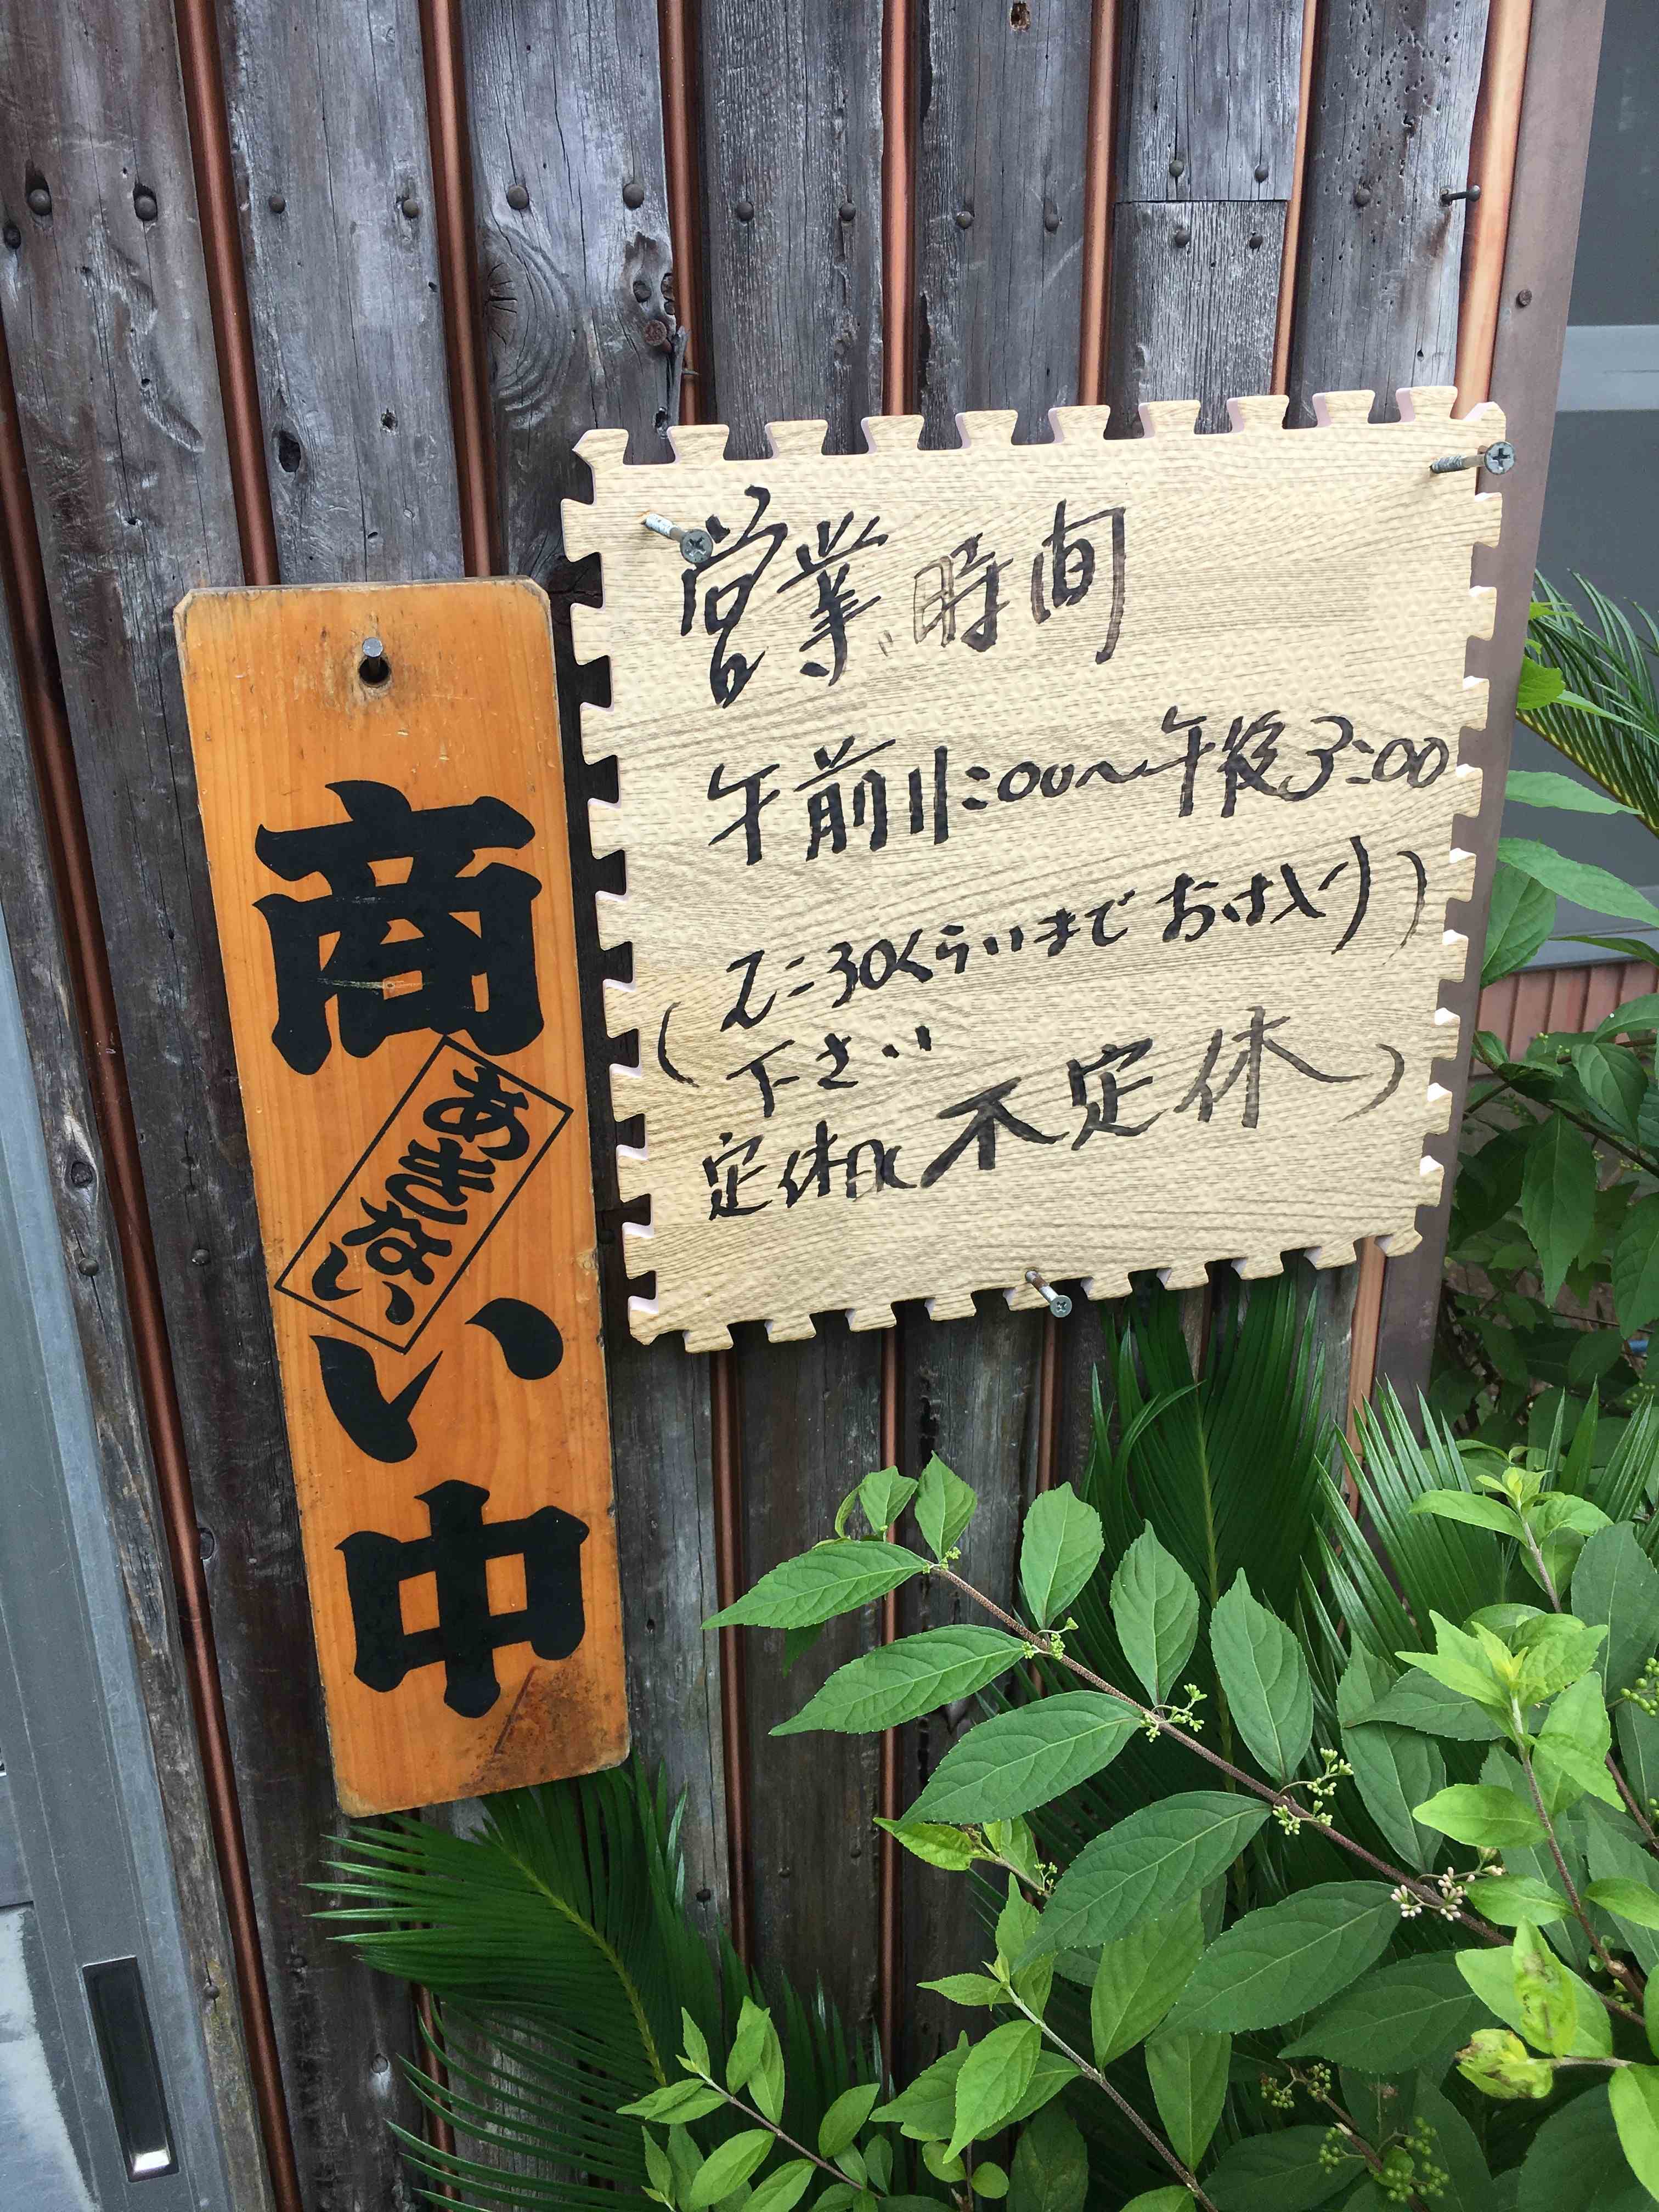 商い中
あきない
営業時間
午前11:00〜午後3:00
(2:30くらいまでお入り)
下さい
定休日 不定休)